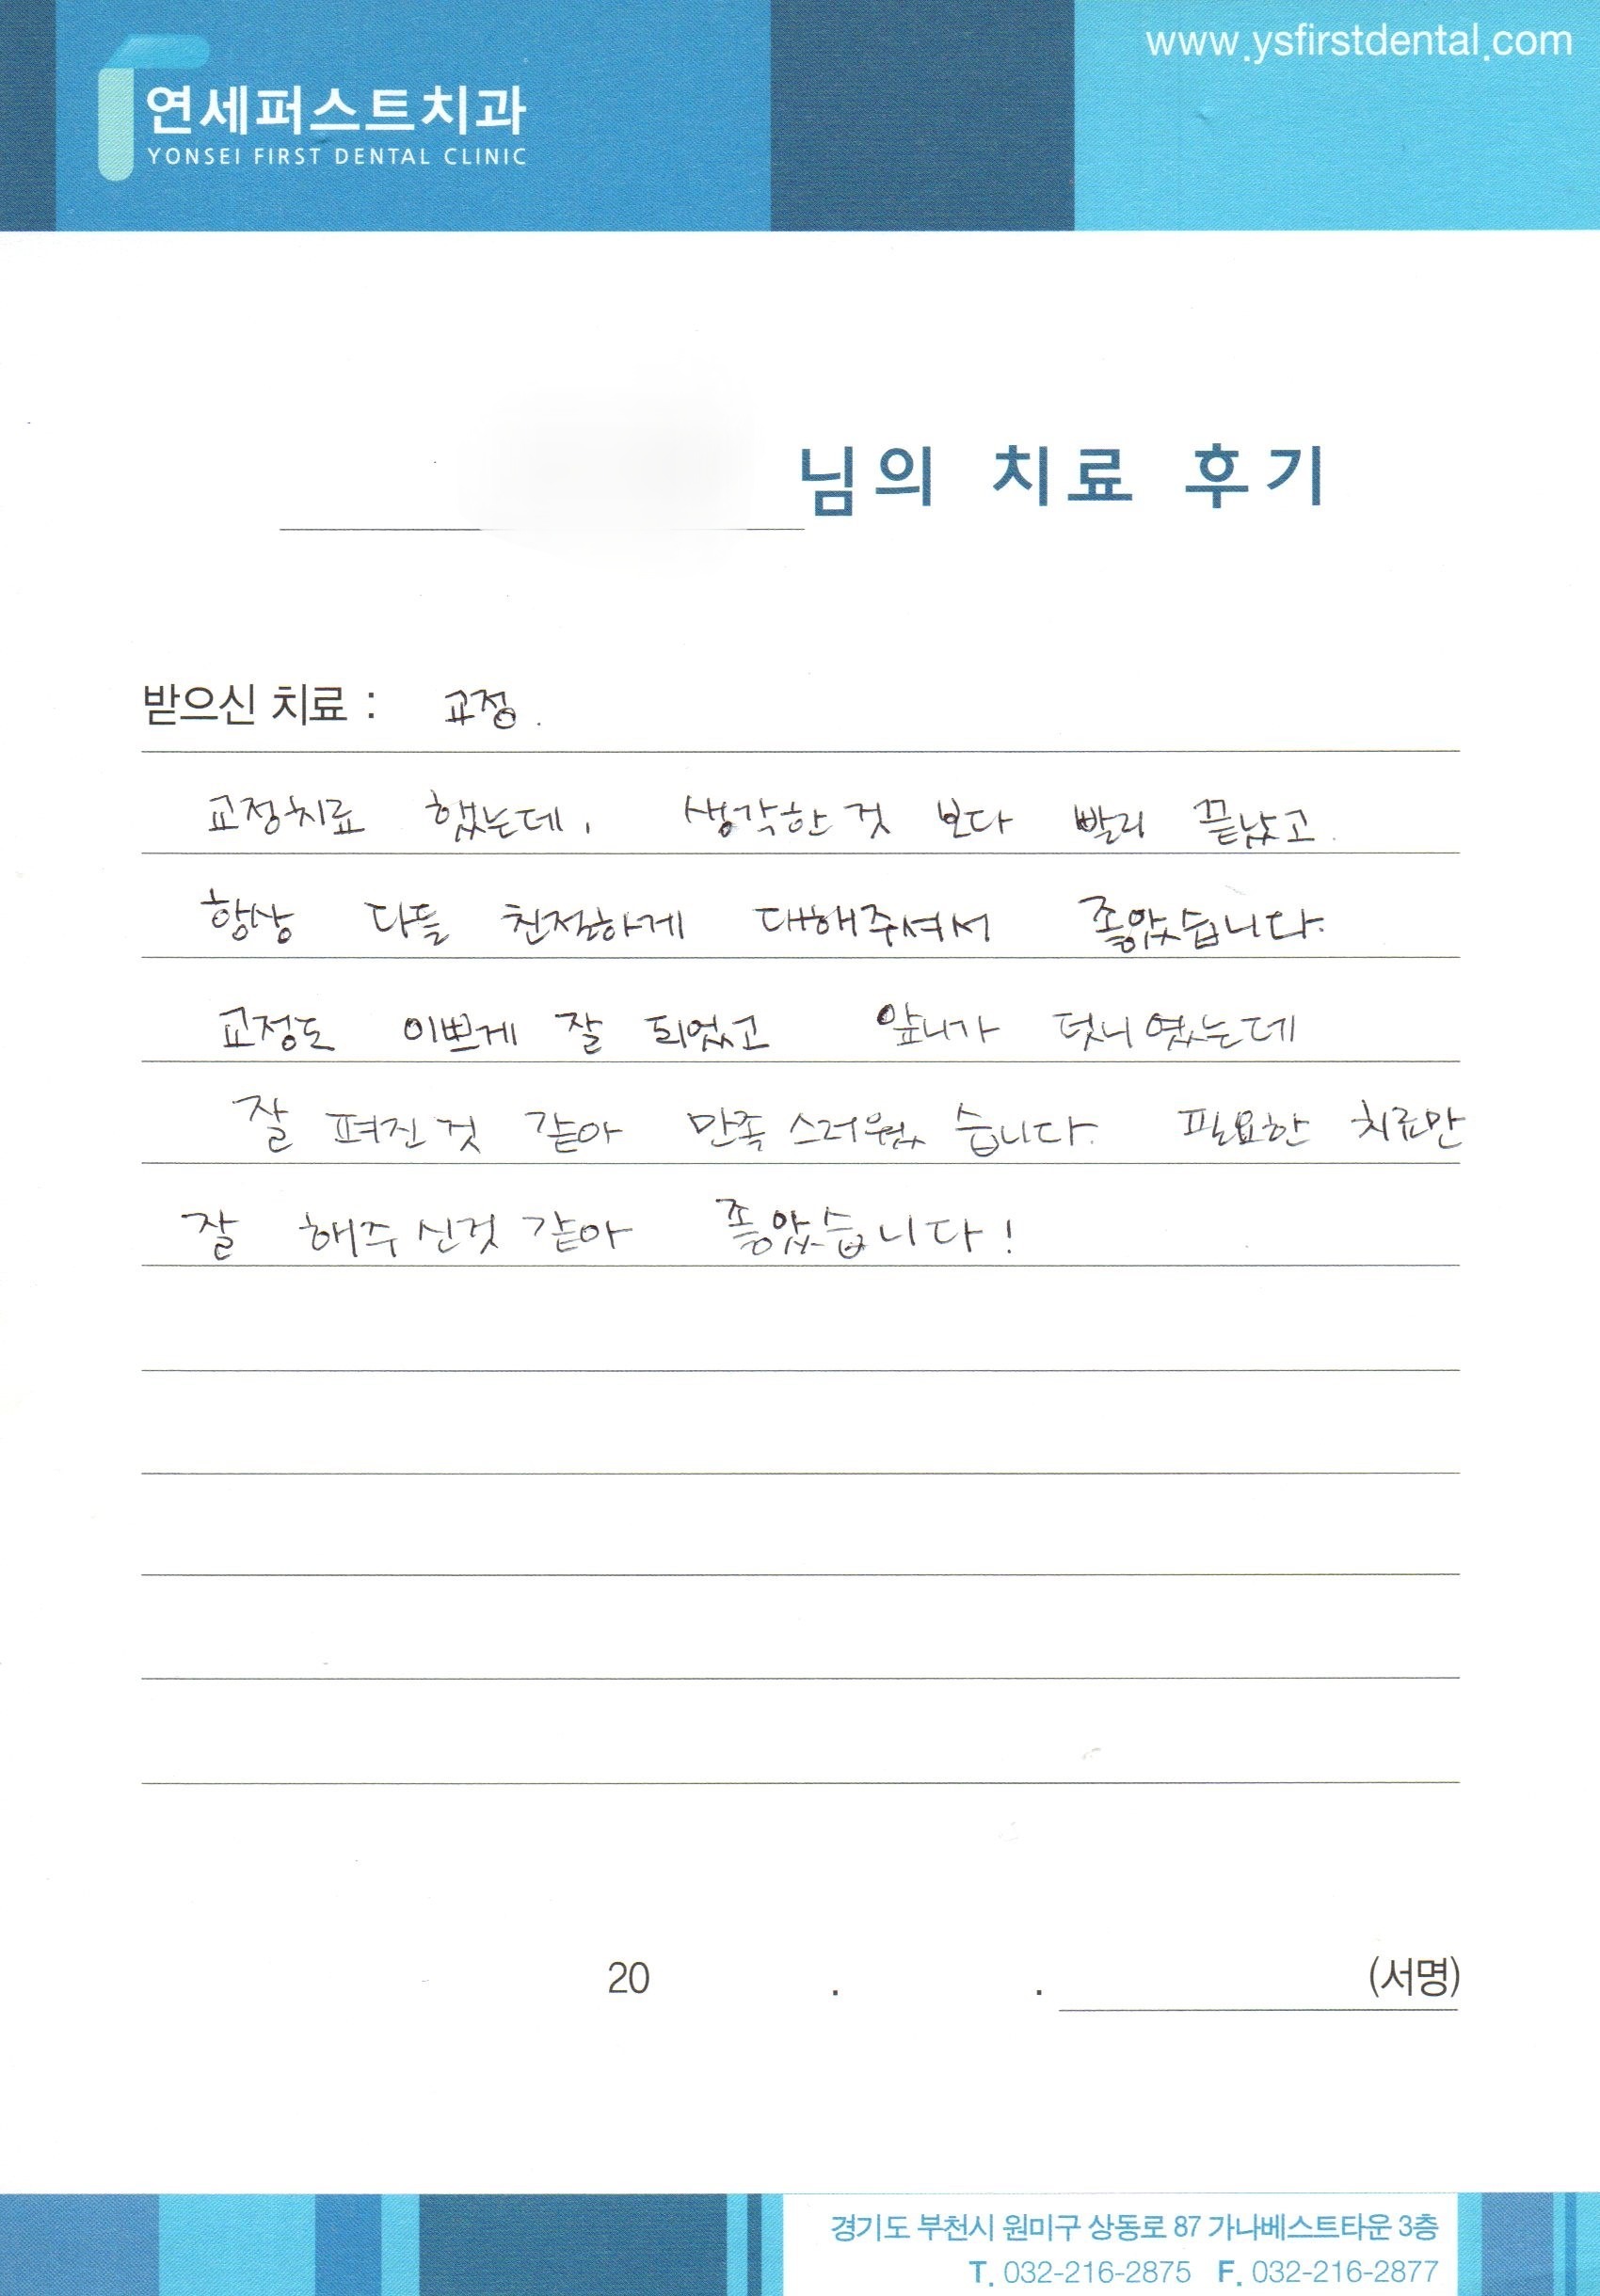 www.ysfirstdental.com
연세퍼스트치과
YONSEI FIRST DENTAL CLINIC
님의 치료 후기
받으신 치료 : 교정.
교정치료 했는데, 생각한 것 보다 빨리 끝났고.
항상 다들 친절하게 대해주셔서 좋았습니다.
교정도 이쁘게 잘 되었고 앞니가 덧니 였는데
잘 펴진 것 같아 만족 스러웠 습니다. 필요한 치료만
잘 해주신것 같아 좋았습니다!
20 . . (서명)
경기도 부천시 원미구 상동로 87 가나베스트타운 3층
T. 032-216-2875 F. 032-216-2877